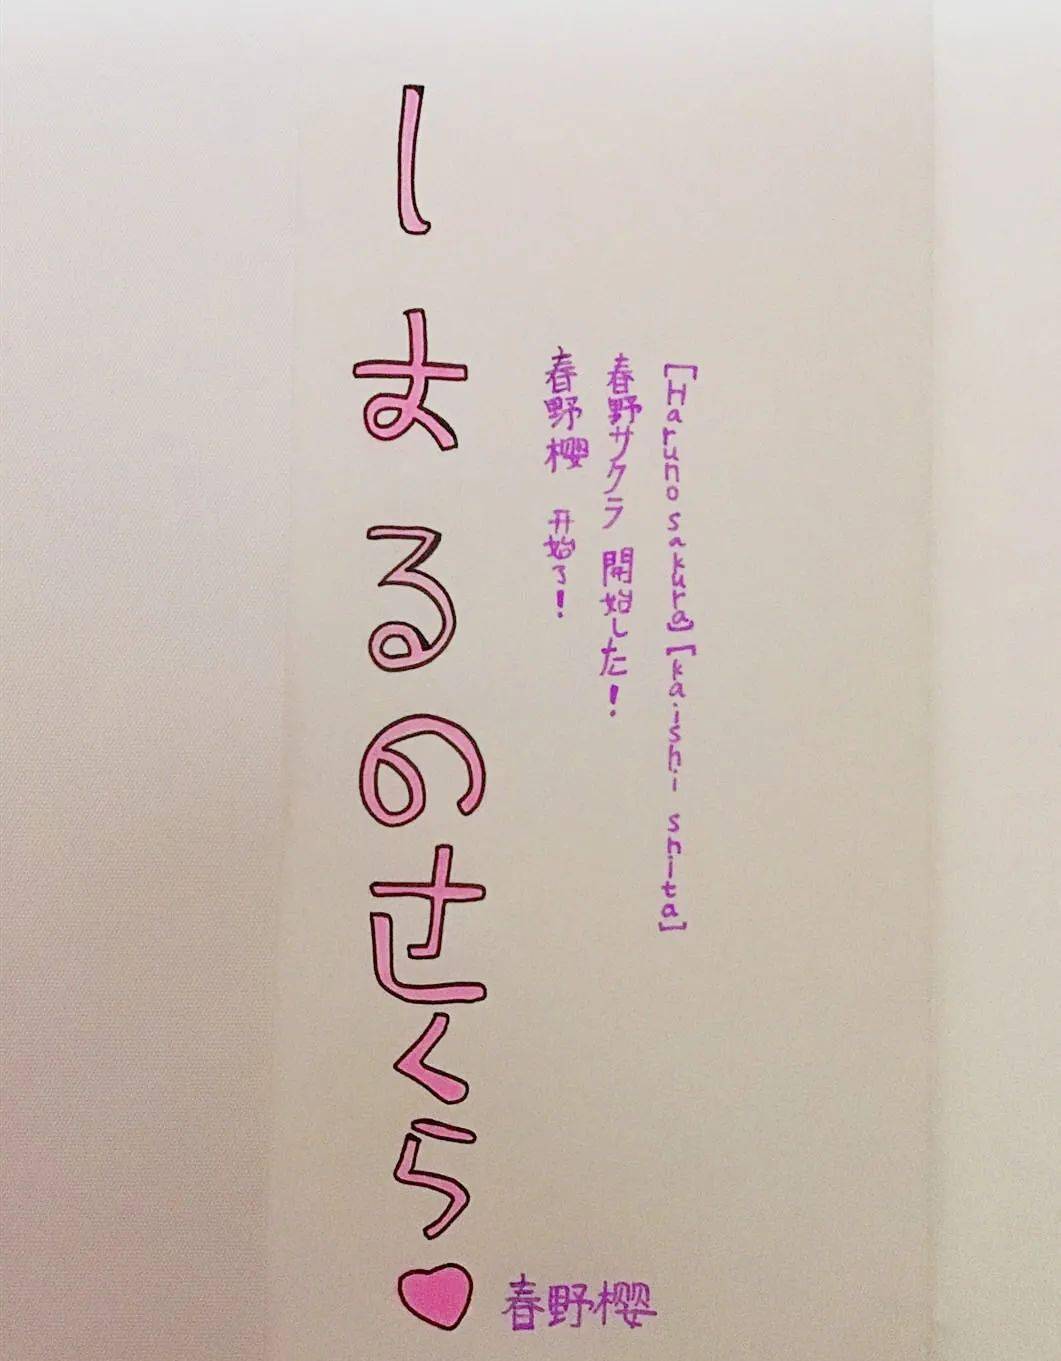 [Haruno sakura][ka.ishi shita]
春野サクラ 開始した!
春野樱 开始了!
はるのさくら♥
春野樱